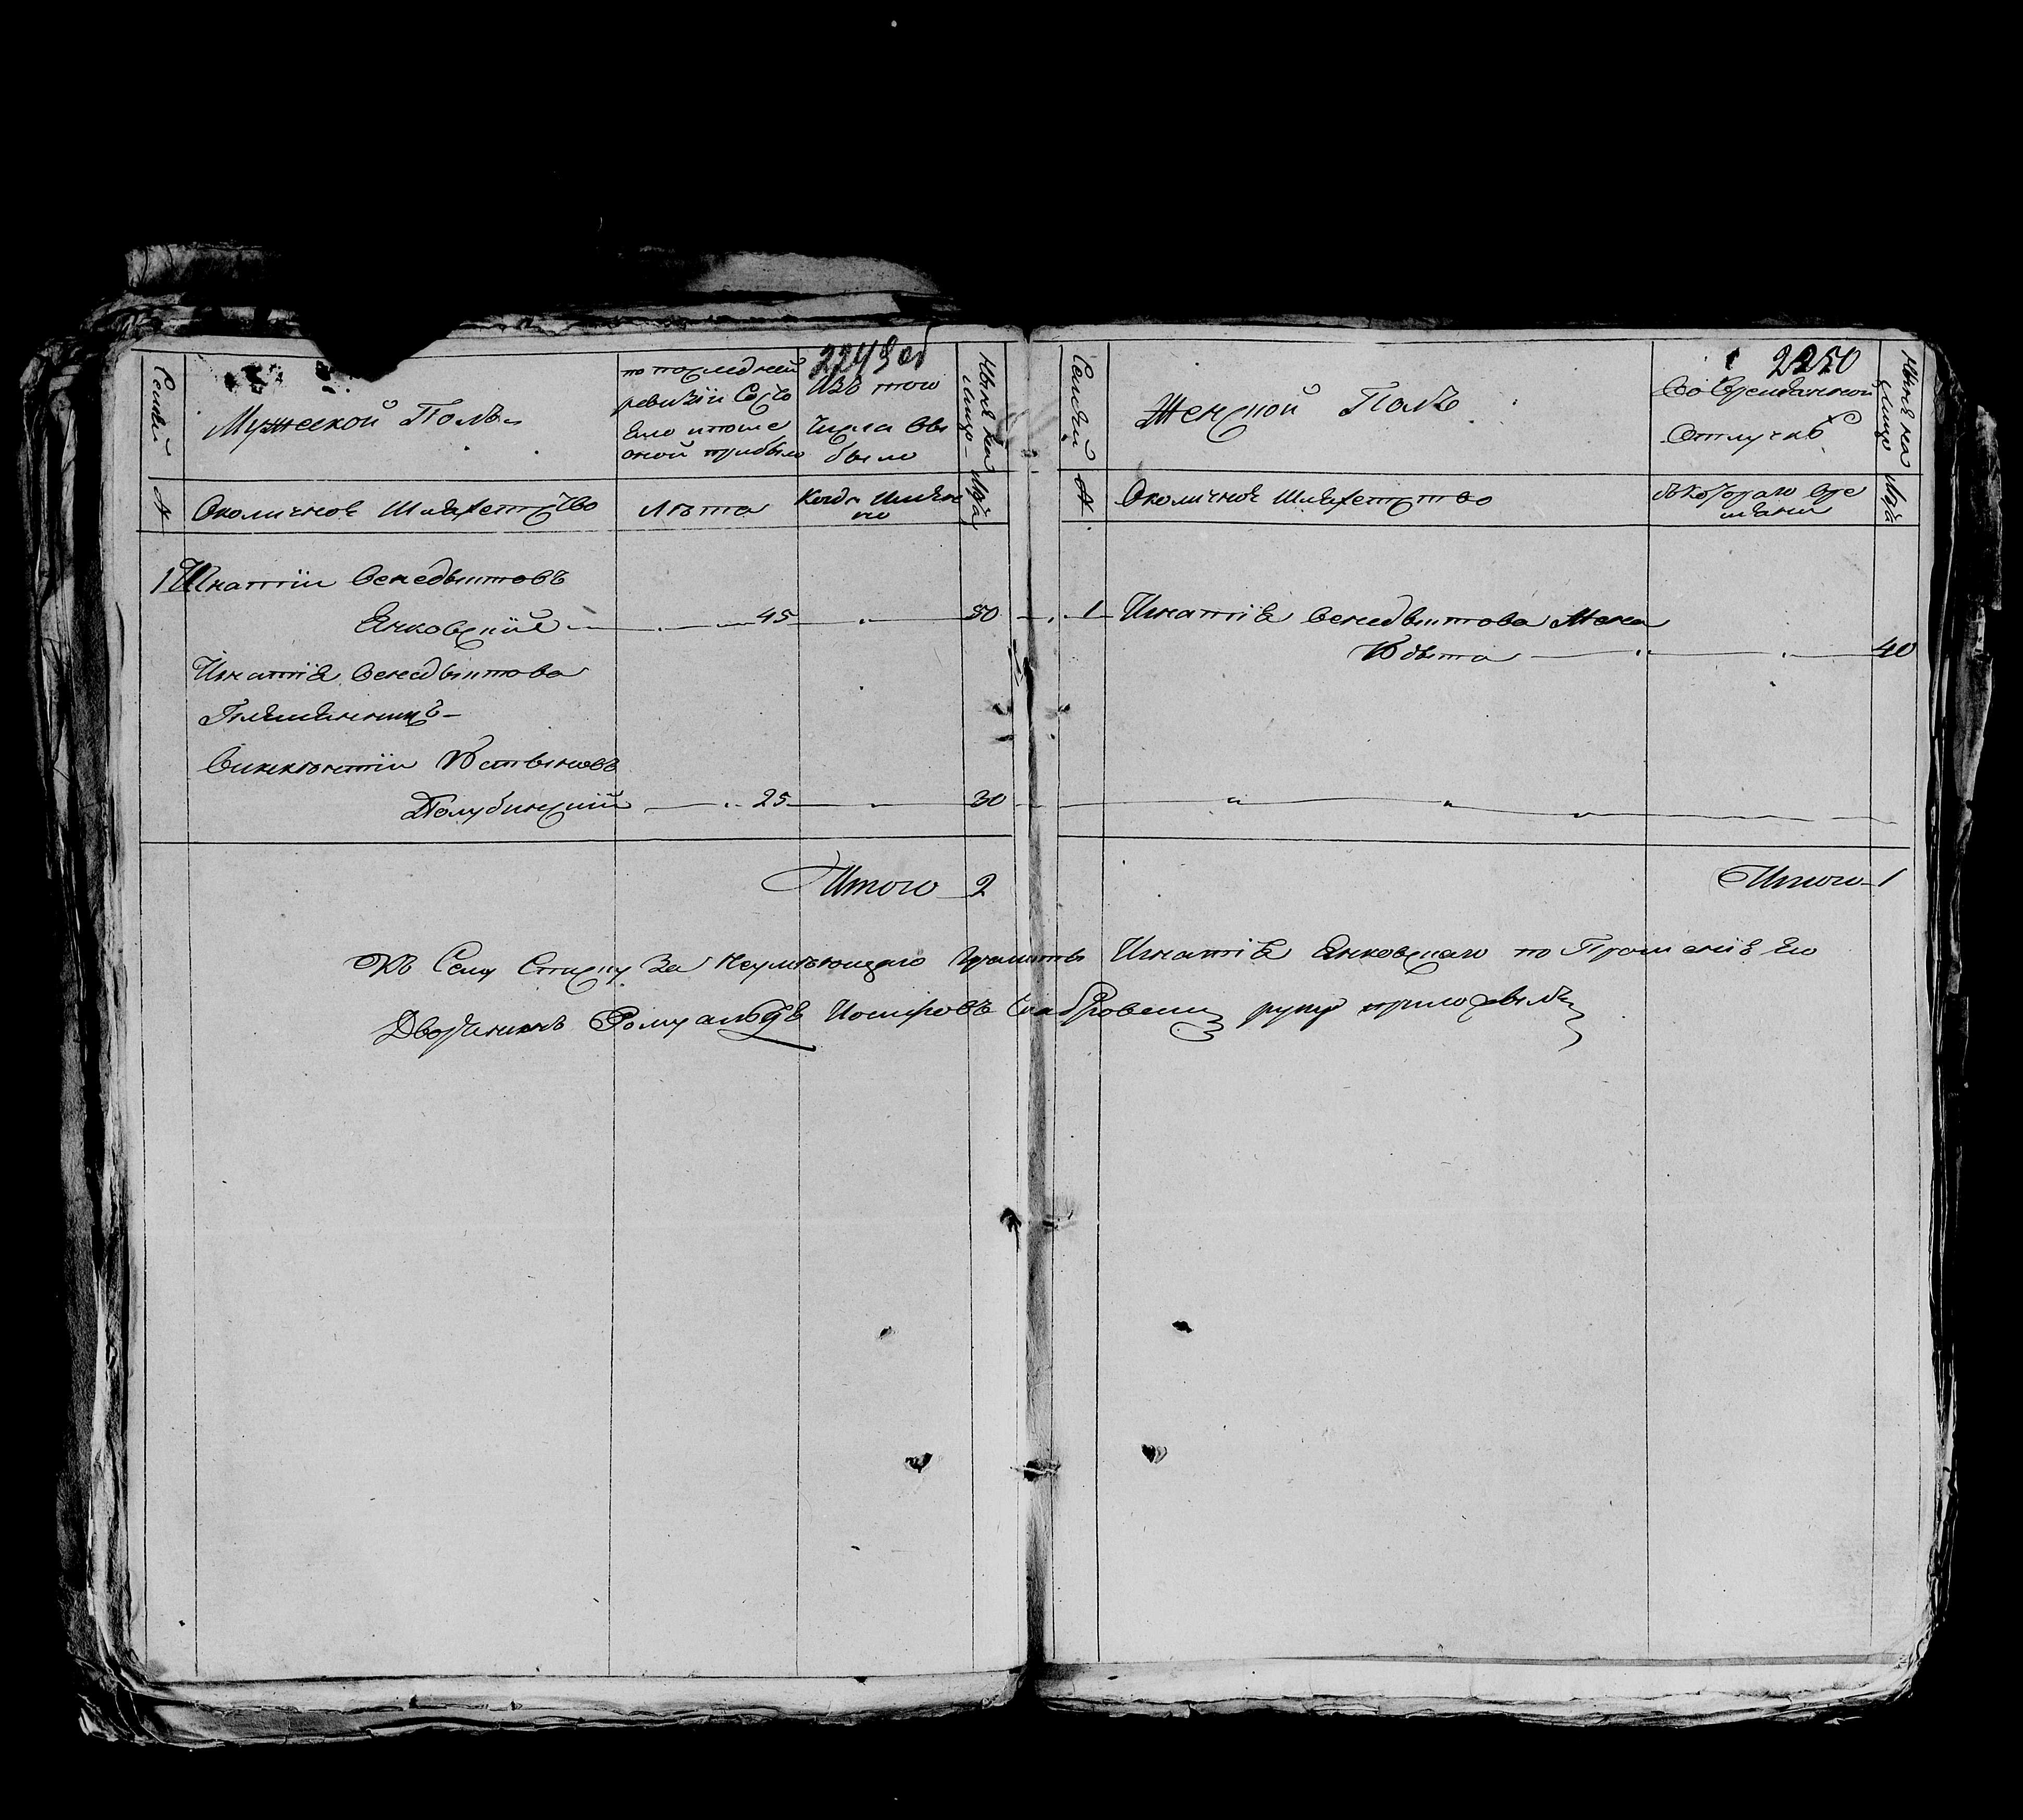 2249 об
Семьи
Мужеской Полъ
по последней
ревизіи Состо
яло и после
оной прибыло
Изъ того
Числа Вы
было
Ныне на
лицо
№
Околичное Шляхетство
Лѣта
Когда имянно
Лѣта
1 Игнатіи Венедыктовъ
Янковскій 45 " 50
Игнатія Венедыктова
Племянникъ
Викентіи
Голубицкій 25 " 30
Итого 2
2250
Семьи
Женской Полъ
Во временной
Отлучкѣ
Ныне на
лицо
№
Околичное Шляхетство
Съ котораго вре
мяни
Лѣта
1 Игнатія Венедыктова Жена
" " 40
" " "
Итого 1
Къ Сему Списку За Неумѣющаго Грамоты Игнатія Янковскаго по Прошенію Его
Дворянинъ Ромуальдъ руку приложилъ